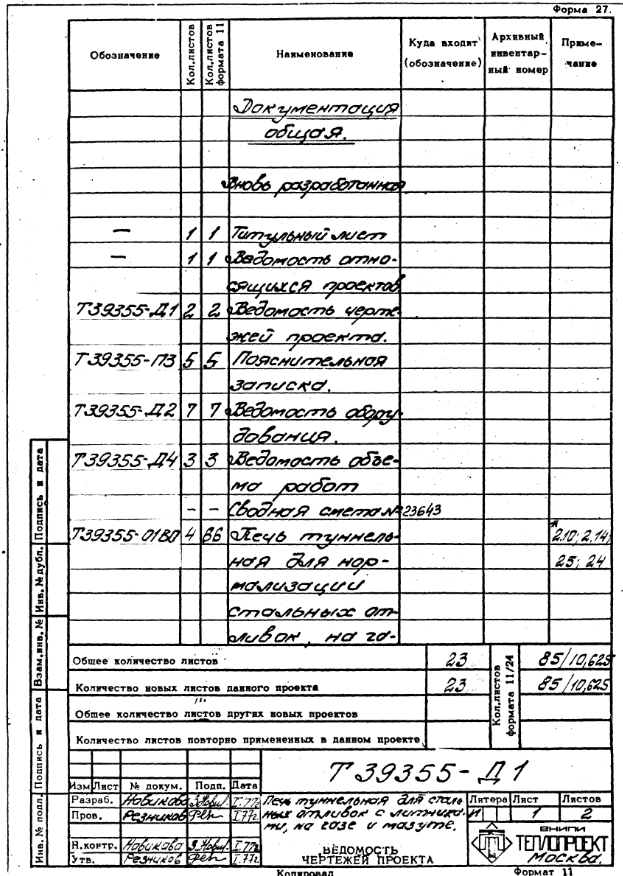 Форма 27.
Обозначение Кол.листов Кол.листов формата 11 Наименование Куда входит (обозначение) Архивный инвентарный номер Примечание
Документация
общая.
Вновь разработанная
— 1 1 Титульный лист
— 1 1 Ведомость отно-
сящихся проектов
Т39355-Д1 2 2 Ведомость черте
жей проекта.
Т39355-ПЗ 5 5 Пояснительная
записка.
Т39355-Д2 7 7 Ведомость обору-
дования.
Т39355-Д4 3 3 Ведомость объе-
ма работ
- - Сводная смета №23643
Т39355-01ВО 4 66 Печь туннель- * 2.10; 2.14;
ная для нор- 25; 24
мализации
стальных от-
ливок, на га-
Общее количество листов 23 Кол.листов формата 11/24 85/10,625
Количество новых листов данного проекта 23 85/10,625
Общее количество листов других новых проектов
Количество листов повторно примененных в данном проекте
Т 39355-Д1
Изм Лист № докум. Подп. Дата
Разраб. Новикова I.77г. Печь туннельная для сталь Литера Лист Листов
Пров. Резников I.77г. ных отливок с литника- И 1 2
ми, на газе и мазуте.
Н.контр. Новикова I.77г. ВЕДОМОСТЬ ВНИПИ
Утв. Резников I.77г. ЧЕРТЕЖЕЙ ПРОЕКТА ТЕПЛОПРОЕКТ
Москва.
Копировал Формат 11
Инв. № подл. Подпись и дата Взам.инв. № Инв. № дубл. Подпись и дата